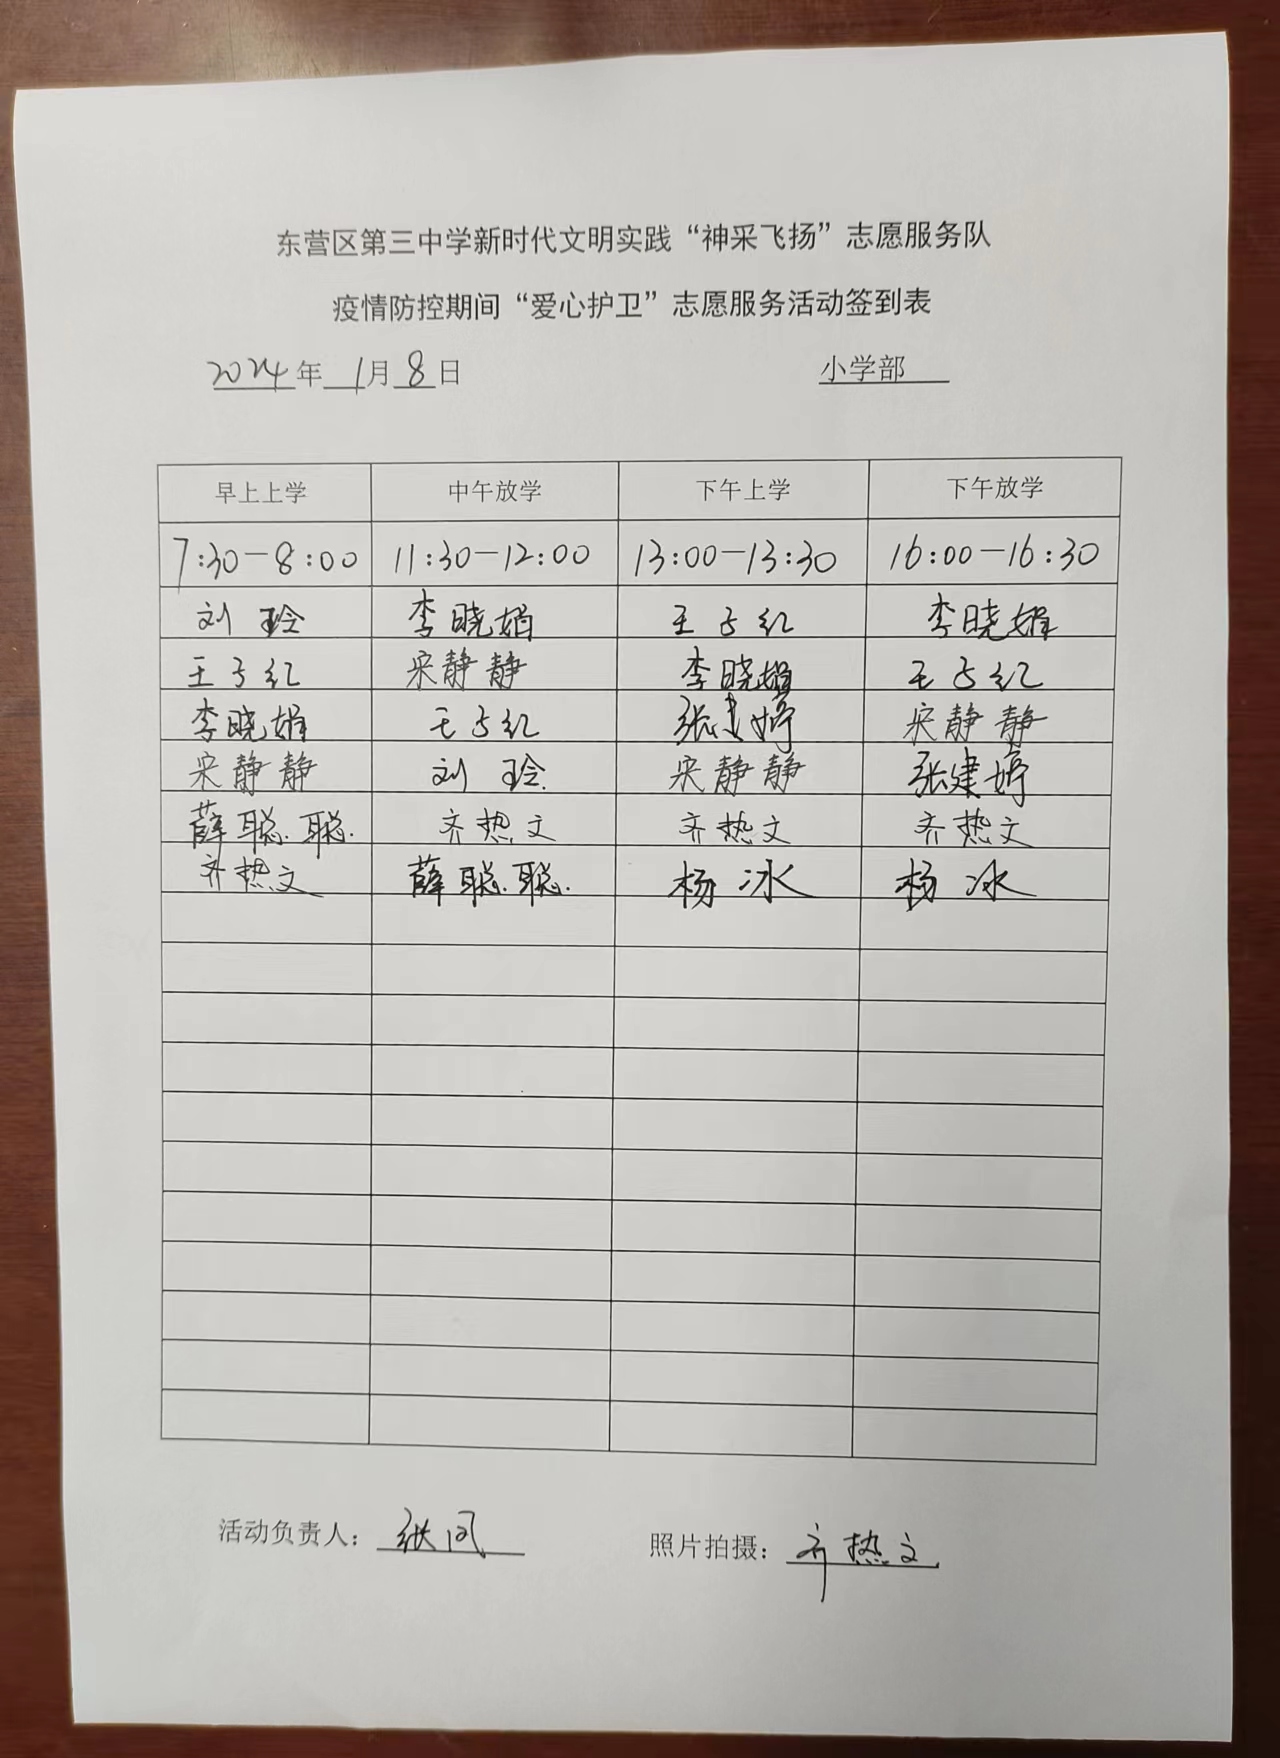 东营区第三中学新时代文明实践“神采飞扬”志愿服务队
疫情防控期间“爱心护卫”志愿服务活动签到表
2024年 1月 8日 小学部
早上上学 中午放学 下午上学 下午放学
7:30-8:00 11:30-12:00 13:00-13:30 16:00-16:30
刘玲 李晓娟 王子红 李晓娟
王子红 宋静静 李晓娟 王子红
李晓娟 王子红 张建婷 宋静静
宋静静 刘玲 宋静静 张建婷
薛聪聪 齐热文 齐热文 齐热文
齐热文 薛聪聪 杨冰 杨冰
活动负责人：张凤 照片拍摄：齐热文